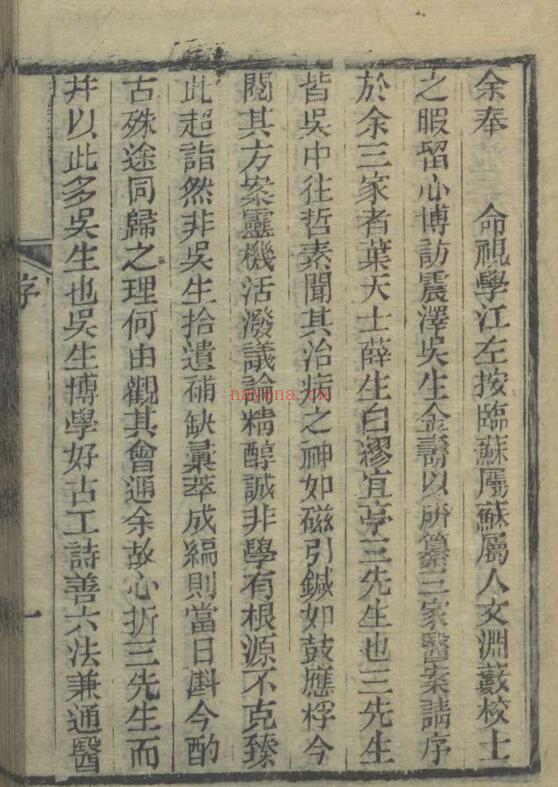 余奉　命視學江左按臨蘇屬蘇屬人文淵藪校士
之暇留心博訪震澤吳生金壽以所纂三家醫案請序
於余三家者葉天士薛生白繆宜亭三先生也三先生
皆吳中往哲素聞其治病之神如磁引鍼如鼓應桴今
閱其方案靈機活潑議論精醇誠非學有根源不克臻
此超詣然非吳生拾遺補缺彙萃成編則當日斟今酌
古殊途同歸之理何由觀其會通余故心折三先生而
并以此多吳生也吳生博學好古工詩善六法兼通醫
序
一